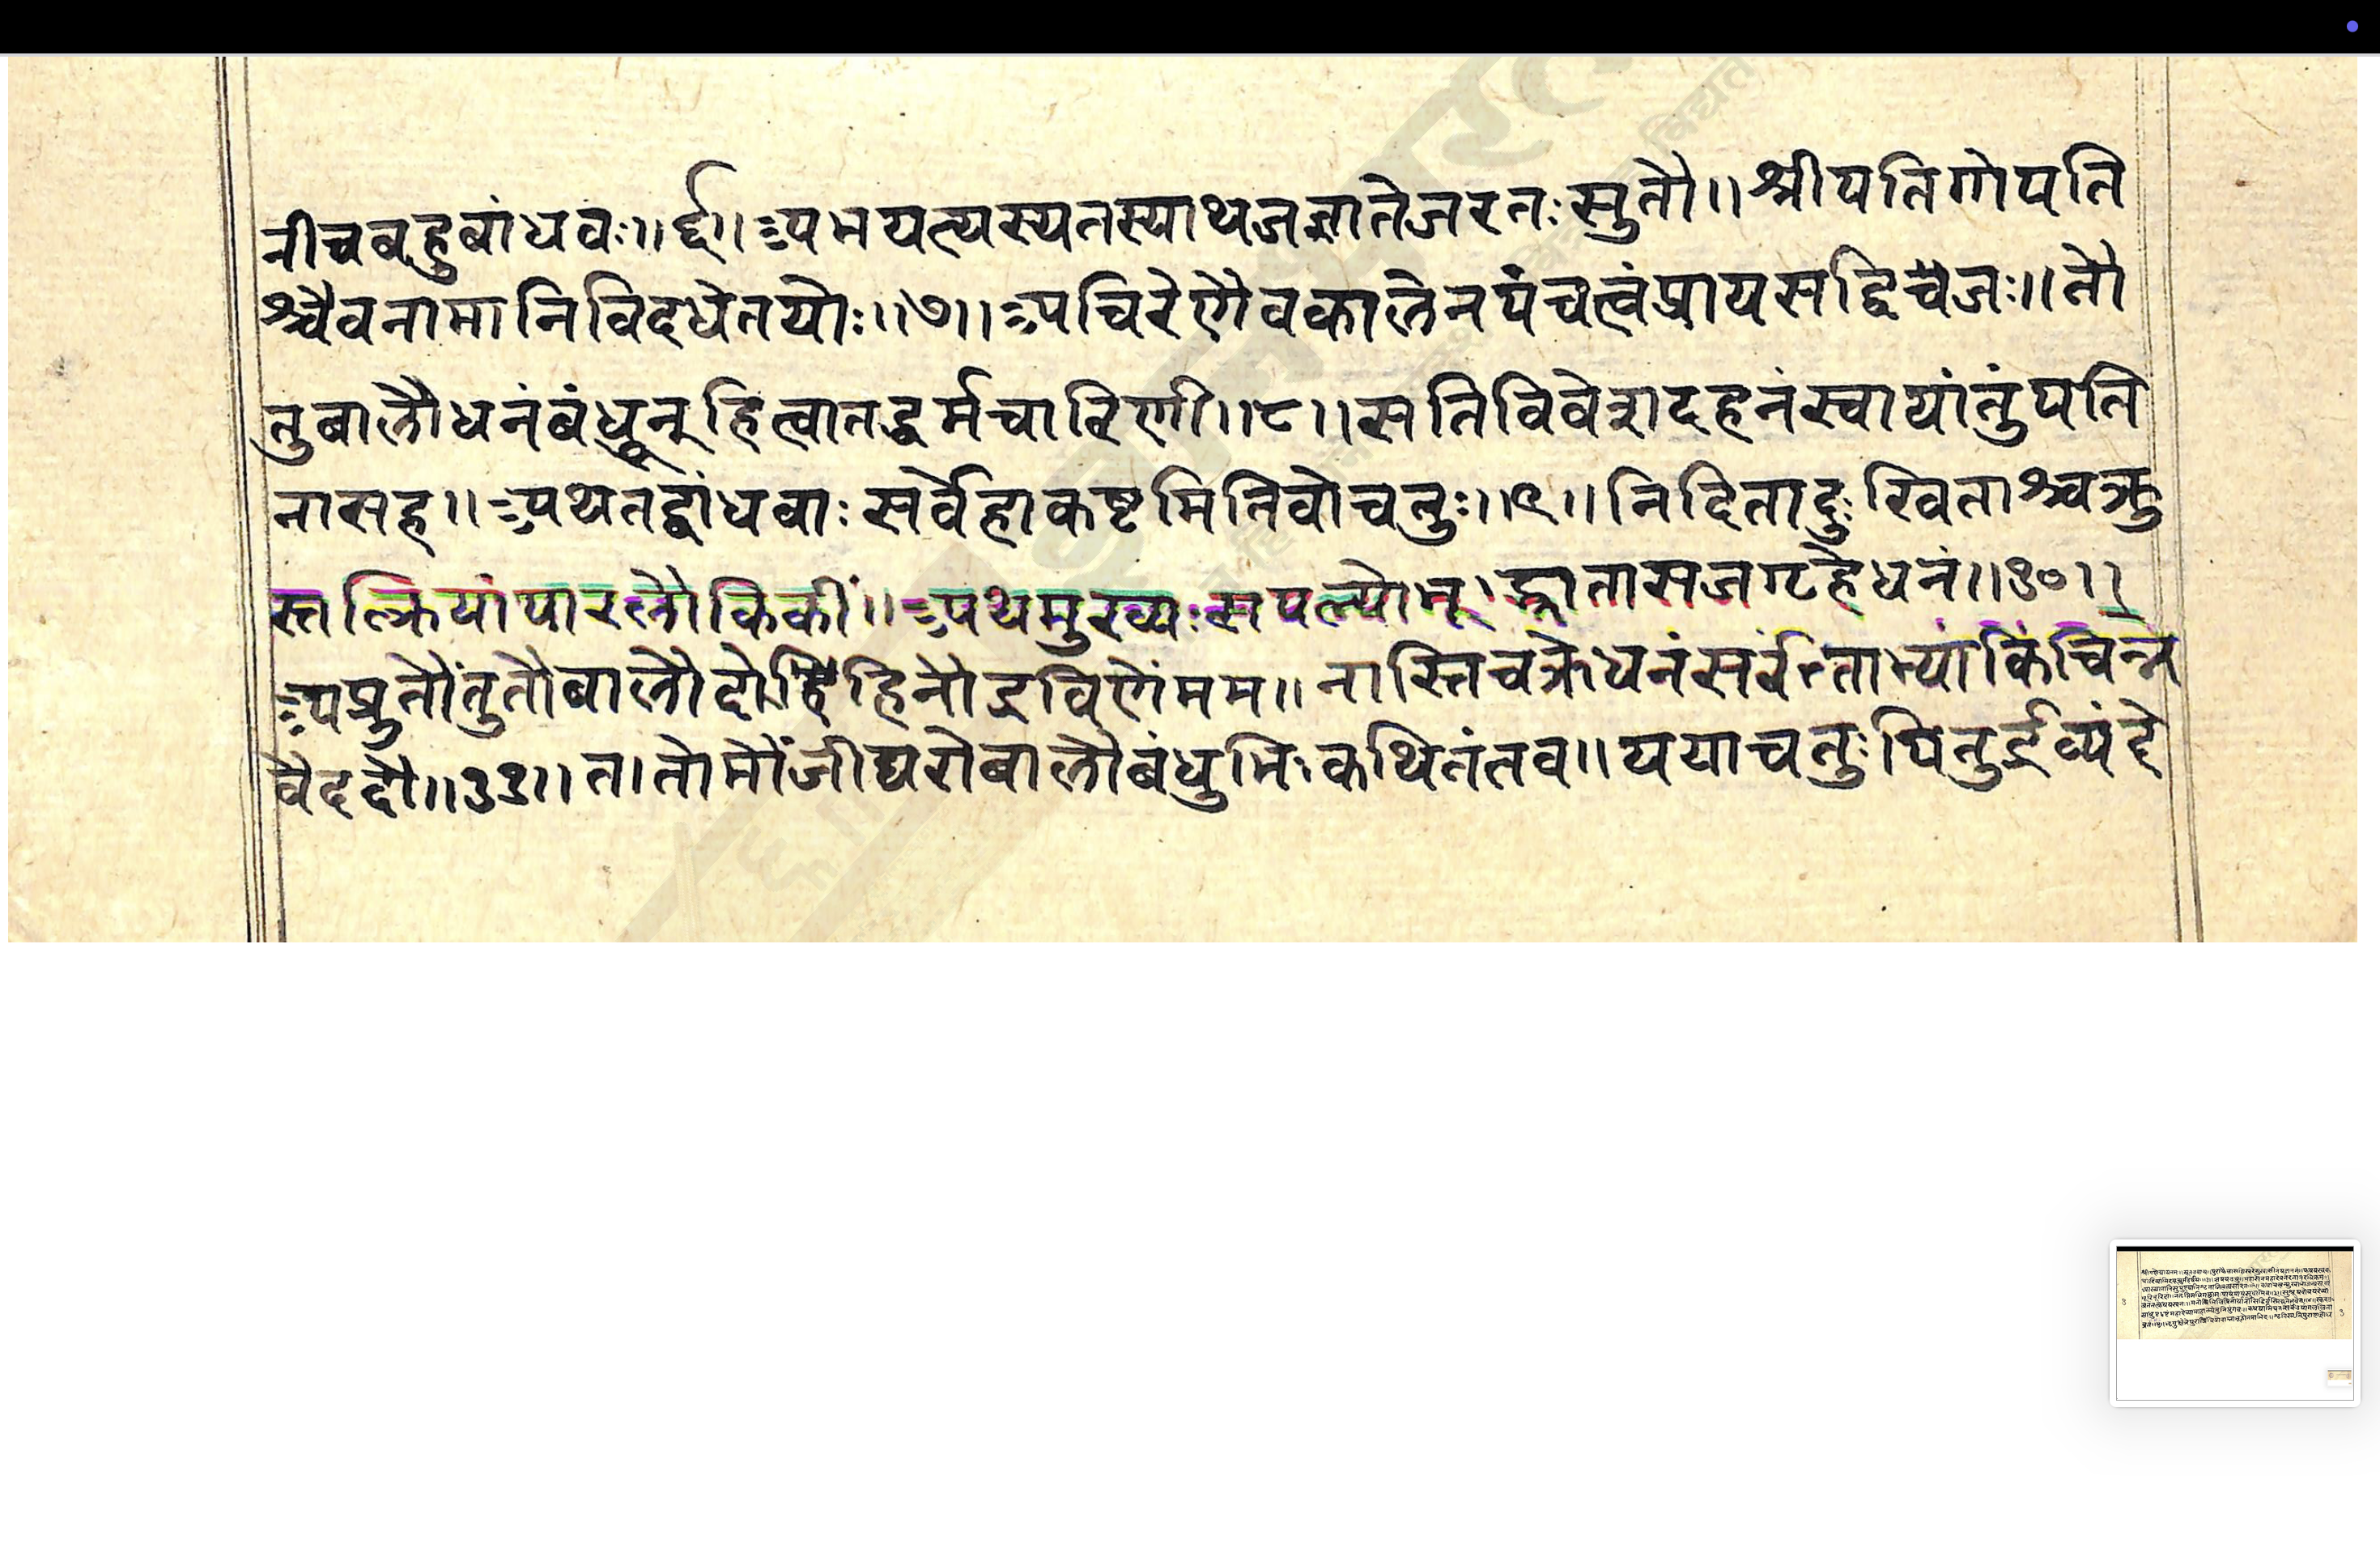 नीचबहुबांधवः॥६॥अपमयत्यस्यतस्याथजज्ञातेजरतःसुतौ॥श्रीपतिगोपति
श्चैवनामानिविदधेतयोः॥७॥अचिरेणैवकालेनपंचत्वंप्रायसद्विजः॥तौ
तुबालौधनंबंधून्हित्वातद्धर्मचारिणी॥८॥सतिविवेशदहनंस्वायांतुंपति
नासह॥अथतद्बांधवाःसर्वेहाकष्टमितिवोचतुः॥९॥निंदितादुःखिताश्चक्रु
स्तत्क्रियांपारलौकिकीं॥अथमुख्यःसपल्योभू।द्भ्रातासजगृहेधनं॥१०॥
अप्रुतौंतुतौबालौदोहिहिनौद्रविणंमम॥नास्तिचक्रेधनंसर्वंताभ्यांकिंचिन्न
वैददौ॥११॥त।तोमौंजीधरोबालौबंधुभिःकथितंतव॥ययाचतुःपितुर्द्रव्यंदे